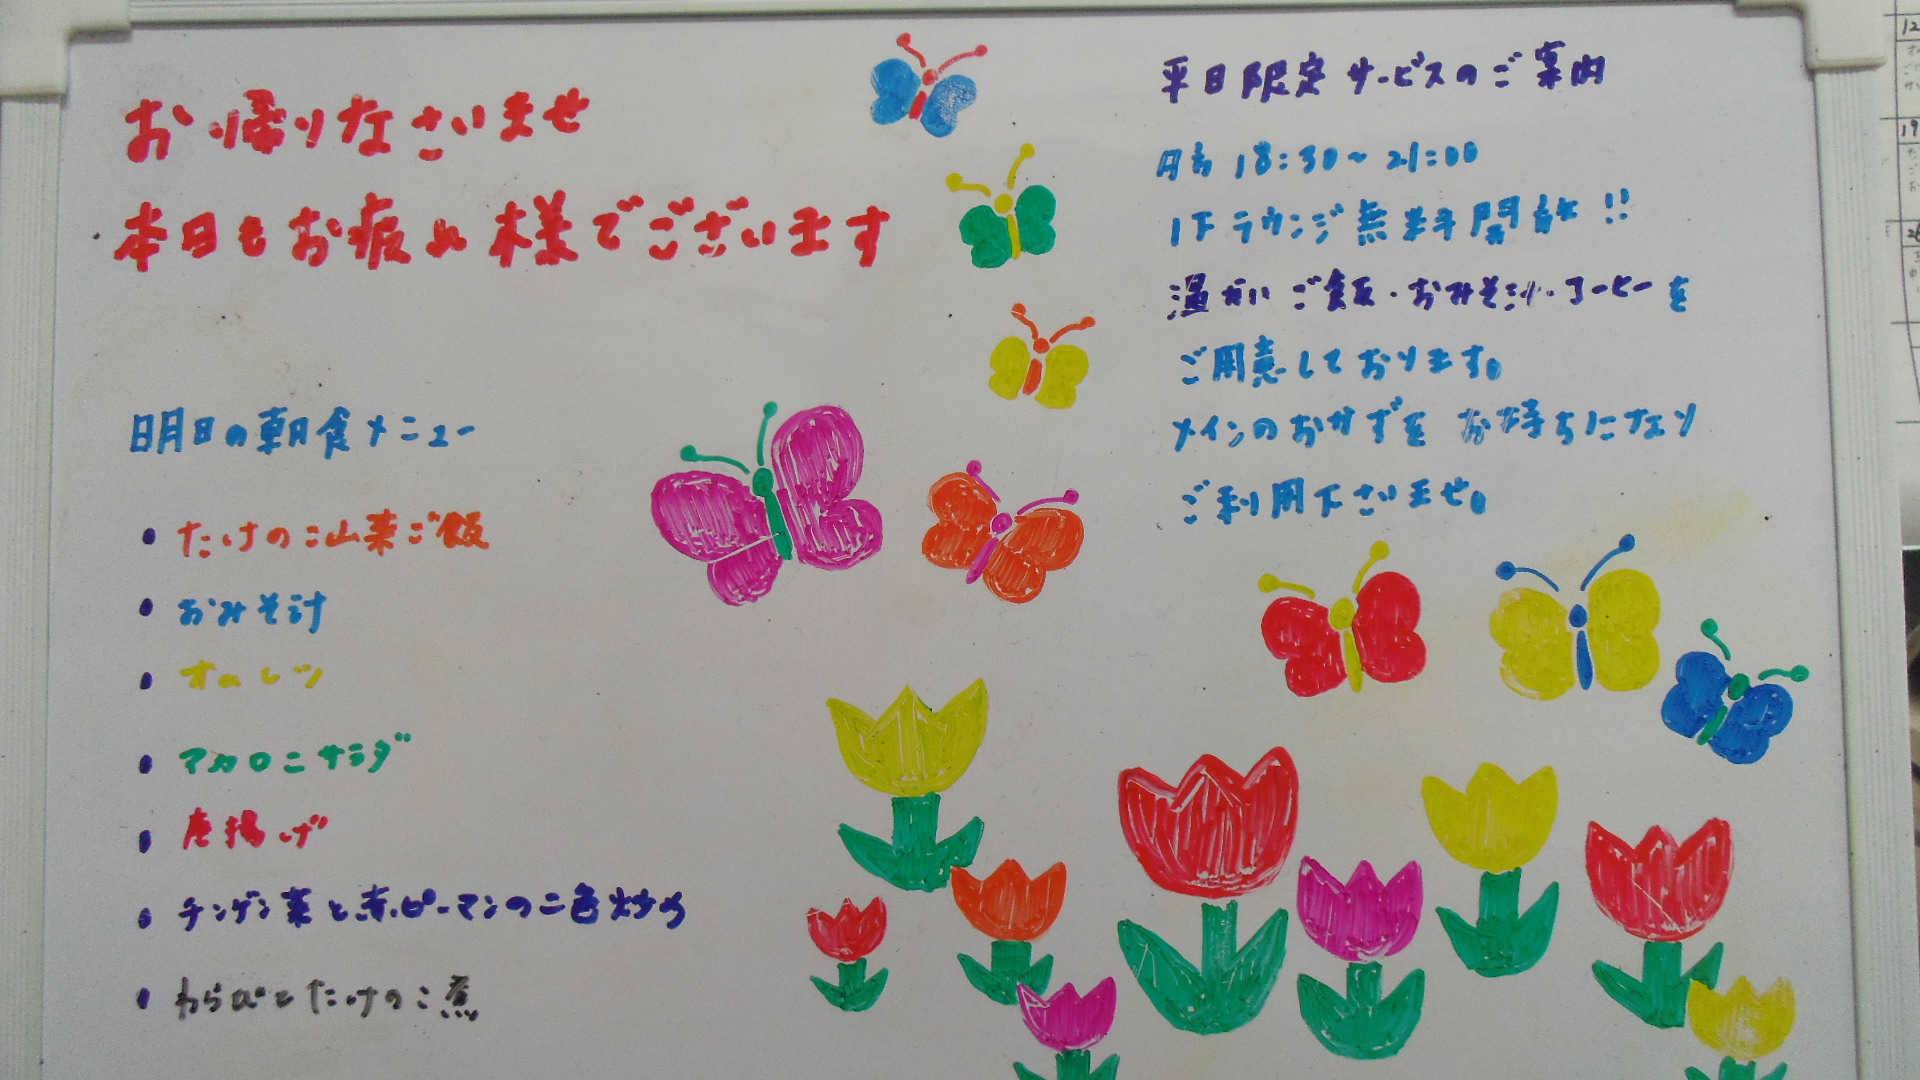 お帰りなさいませ
本日もお疲れ様でございます
明日の朝食メニュー
・たけのこ山菜ご飯
・おみそ汁
・オムレツ
・マカロニサラダ
・唐揚げ
・チンゲン菜と赤ピーマンの二色炒め
・わらびとたけのこ煮
平日限定サービスのご案内
18:30~21:00
1Fラウンジ無料開放!!
温かいご飯・おみそ汁・コーヒーを
ご用意しております。
メインのおかずをお持ちになり
ご利用下さいませ。
12
19